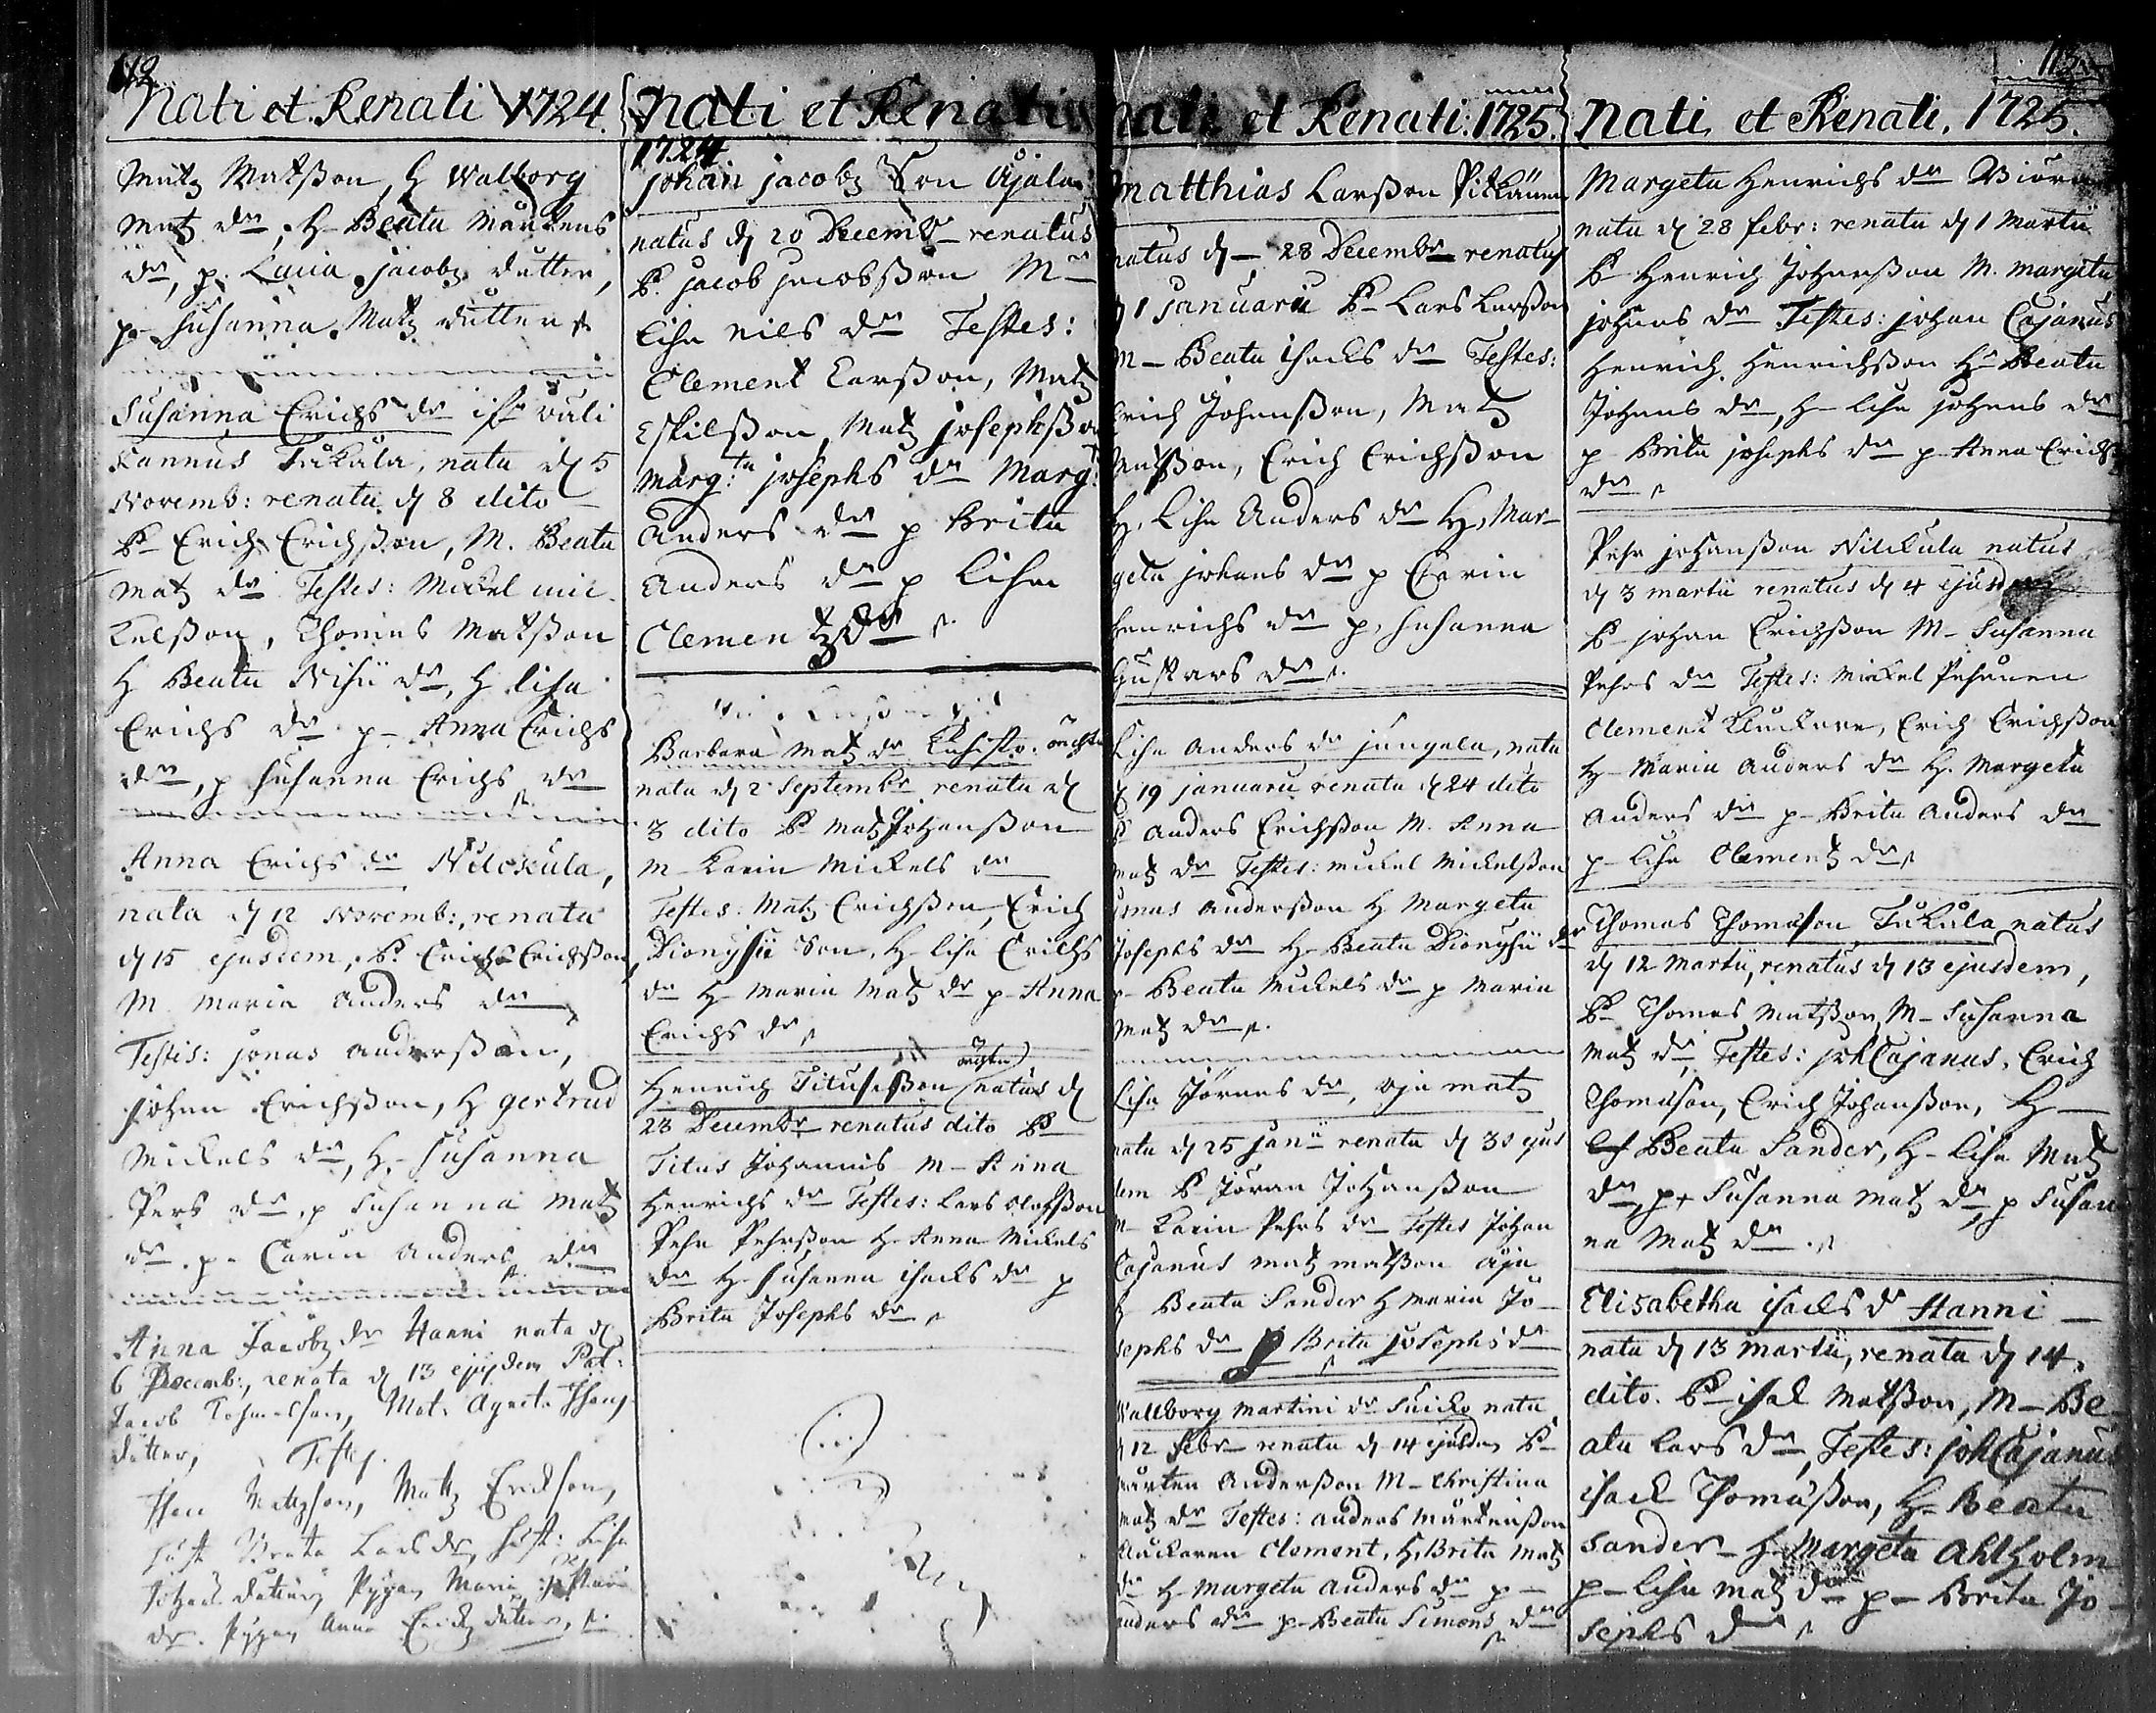 112
Nati et Renati 1724.
Matz Matsson, H Walborg
Matz dr, H- Beata Mårtens
dr, p. Lucia Jacobz dutter,
p- Susanna Matz dutter
Susanna Erichs dr
Kannus Tukåla, nata d 5
Novemb: renata d 8 dito
P- Erich Erichsson, M. Beata
Matz dr Testes: Mickel Mic
kelsson, Thomas Matsson
H Beata Nisii dr, H Lisa
Erichs dr p- Anna Erichs
dr, p Susanna Erichs dr
Anna Erichs dr Nilckula,
nata d 12 Novemb:, renata
d 15 ejusdem, P. Erich Erichsson
M. Maria Anders dr
Testis: Jonas Andersson,
Johan Erichsson, H Gertrud
Mickels dr, H- Susanna
Pers dr, p Susanna Matz
dr. p- Carin Anders dr
Anna Jacobz dr Hanni nata d
6 Decemb:, renata d 13 ejusdem Pat:
Jacob Thomasson, Mat. Agneta
dutter, Testes.
Matzson, Matz Erickson,
hust Beata Lars dr, hust: Lisa
Johans dutter, Pygan Maria
dr. Pygan Anna Erichz dutter
Nati et Renati
1724
Johan Jacobz Son Äjala
natus d 20 Decembr- renatus
P. Jacob Jacobsson M-
Lisa Nils dr Testes:
Clement Larsson, Matz
Eskilsson, Matz Josephsson
Marg:ta Josephs dr Marg:
Anders dr p Brita
Anders dr p Lisa
Clementz dr
Barbara Matz dr
nata d 2 Septembr renata d
3 dito P Matz Johansson
M- Karin Mickels dr
Testes: Matz Erichsson, Erich
Dionysii Son, H- Lisa Erichs
dr H- Maria Matz dr p- Anna
Erichs dr
Henrich Titusson natus d
23 Decembr renatus dito P-
Titus Johannis M- Anna
Henrichs dr Testes: Lars Olofsson
Pehr Pehrsson H- Anna Mickels
dr H- Susanna Isacks dr p
Brita Josephs dr
Nati et Renati: 1725.
Matthias Larsson Pitkänen
natus d- 28 Decembr renatus
d 1 Januarii P- Lars Larsson
M- Beata Isacks dr Testes:
Erich Johansson, Matz
Matsson, Erich Erichsson
H, Lisa Anders dr H, Mar-
geta Johans dr p Carin
Henrichs dr p, Susanna
Gustavs dr
Lisa Anders dr Jungala, nata
d 19 Januarii renata d 24 dito
P Anders Erichsson M. Anna
Matz dr Testes: Mickel Mickelsson
Jonas Andersson H Margeta
Josephs dr H- Beata Dionysii dr
p- Beata Mickels dr p Maria
Matz dr
Lisa Jörans dr, Äja Matz
nata d 25 Janii renata d 30 ejus
dem P Jöran Johansson
M- Karin Pehrs dr Testes Johan
Cajanus Matz Matsson Äja
H Beata Sander H Maria Jo-
sephs dr p Brita Josephs dr
Wallborg Martini dr nata
d 12 Febr- renata d- 14 ejusdem P-
Mårten Andersson M- Christina
Matz dr Testes: Anders Mårtensson
Kluckaren Clement, H, Brita Matz
dr H- Margeta Anders dr p-
Anders dr p- Beata Simons dr
113
Nati, et Renati. 1725.
Margeta Henrichs dr
nata d 28 Febr: renata d 1 Martii
P- Henrich Johansson M. Margeta
Johans dr Testes: Johan Cajanus
Henrich Henrichsson H- Beata
Johans dr, H- Lisa Johans dr
p- Brita Josephs dr p- Anna Erichs
dr
Pehr Johansson Nilckula natus
d 3 Martii renatus d 4 ejusdem
P- Johan Erichsson M- Susanna
Pehrs dr Testes: Mickel
Clement Kluckare, Erich Erichsson
H- Maria Anders dr H. Margeta
Anders dr p- Brita Anders dr
p- Lisa Clementz dr
Thomas Thomasson Tukåla natus
d 12 Martii, renatus d 13 ejusdem,
P- Thomas Matsson, M- Susanna
Matz dr, Testes: Joh Cajanus, Erich
Thomasson, Erich Johansson, H-
Beata Sander, H- Lisa Matz
dr, p+ Susanna Matz dr, p Susan
na Matz dr
Elisabetha Isacks dr Hanni-
nata d 13 Martii, renata d 14.
dito. P- Isac Matsson, M- Be
ata Lars dr, Testes: Joh Cajanus
Isack Thomasson, H- Beata
Sander- H- Margeta Ahlholm
p- Lisa Matz dr p- Brita Jo-
sephs dr